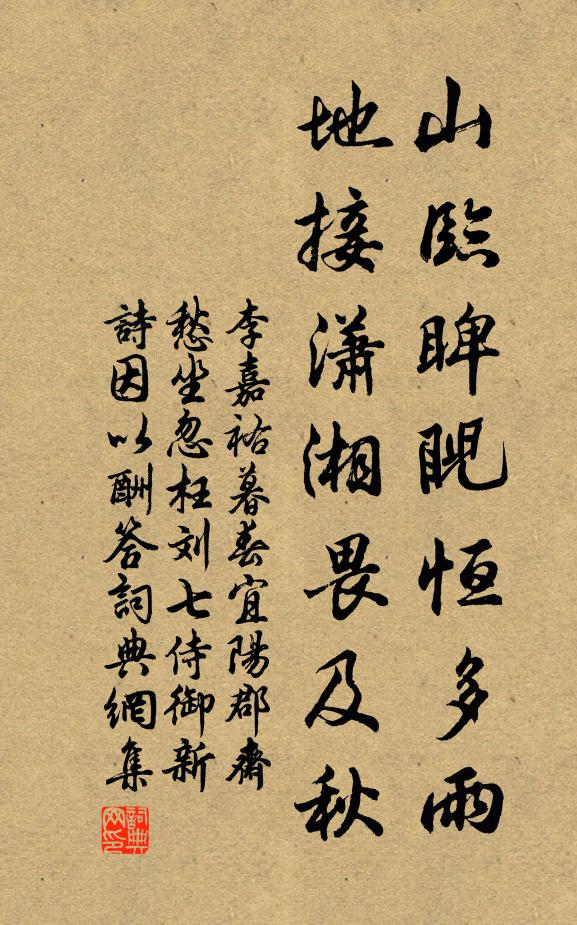 山臨睥睨恒多雨
地接瀟湘畏及秋
李嘉祐暮春宜陽郡齋
愁坐忽枉刘七侍御新
詩因以酬答詞典網集
詞典网印